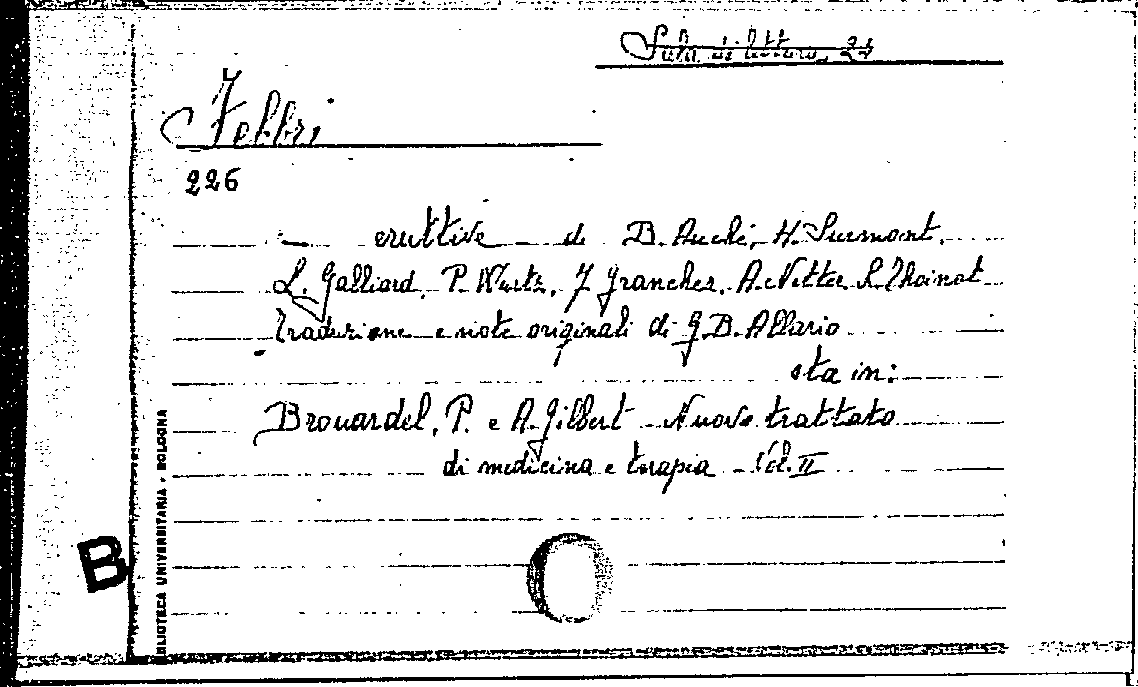 Sala di lettura 23
Febbri
226
— eruttive di B. Auché, H. Surmont,
L. Galliard, P. Wurtz, J Grancher, A. Netter L. Thoinot
Traduzione e note originali di G. B. Allario
sta in:
Brouardel, P. e A. Gilbert - Nuovo trattato
di medicina e terapia - Vol. II
BIBLIOTECA UNIVERSITARIA - BOLOGNA
B